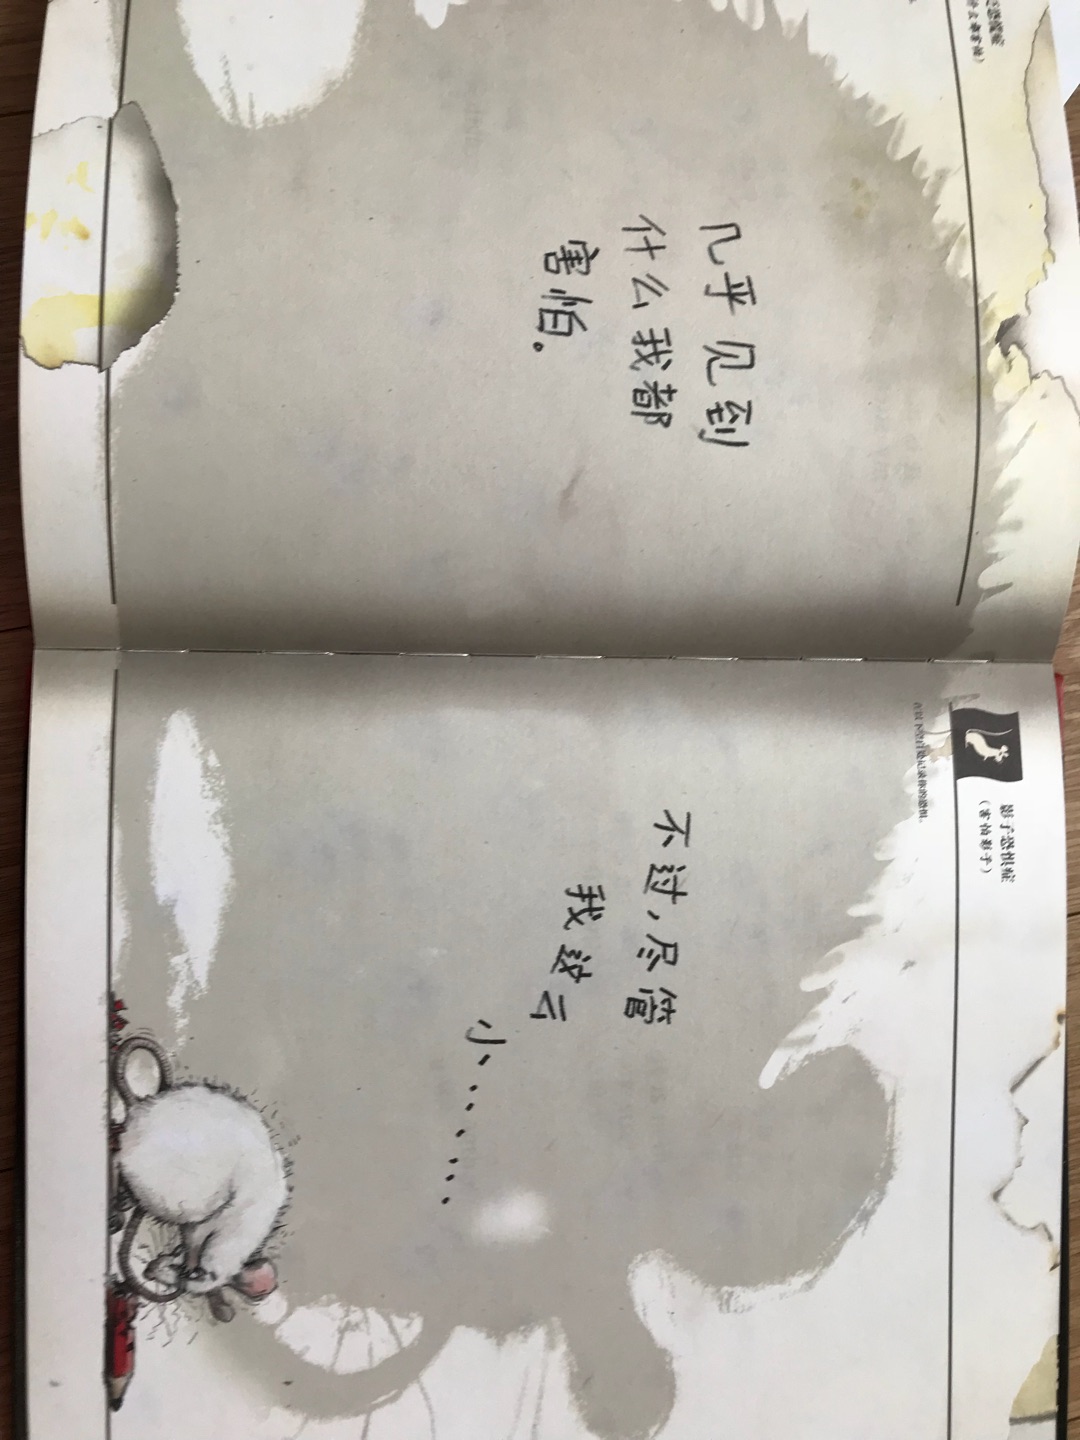 几乎见到
什么我都
害怕。
影子恐惧症
(害怕影子)
不过,尽管
我这么
小……